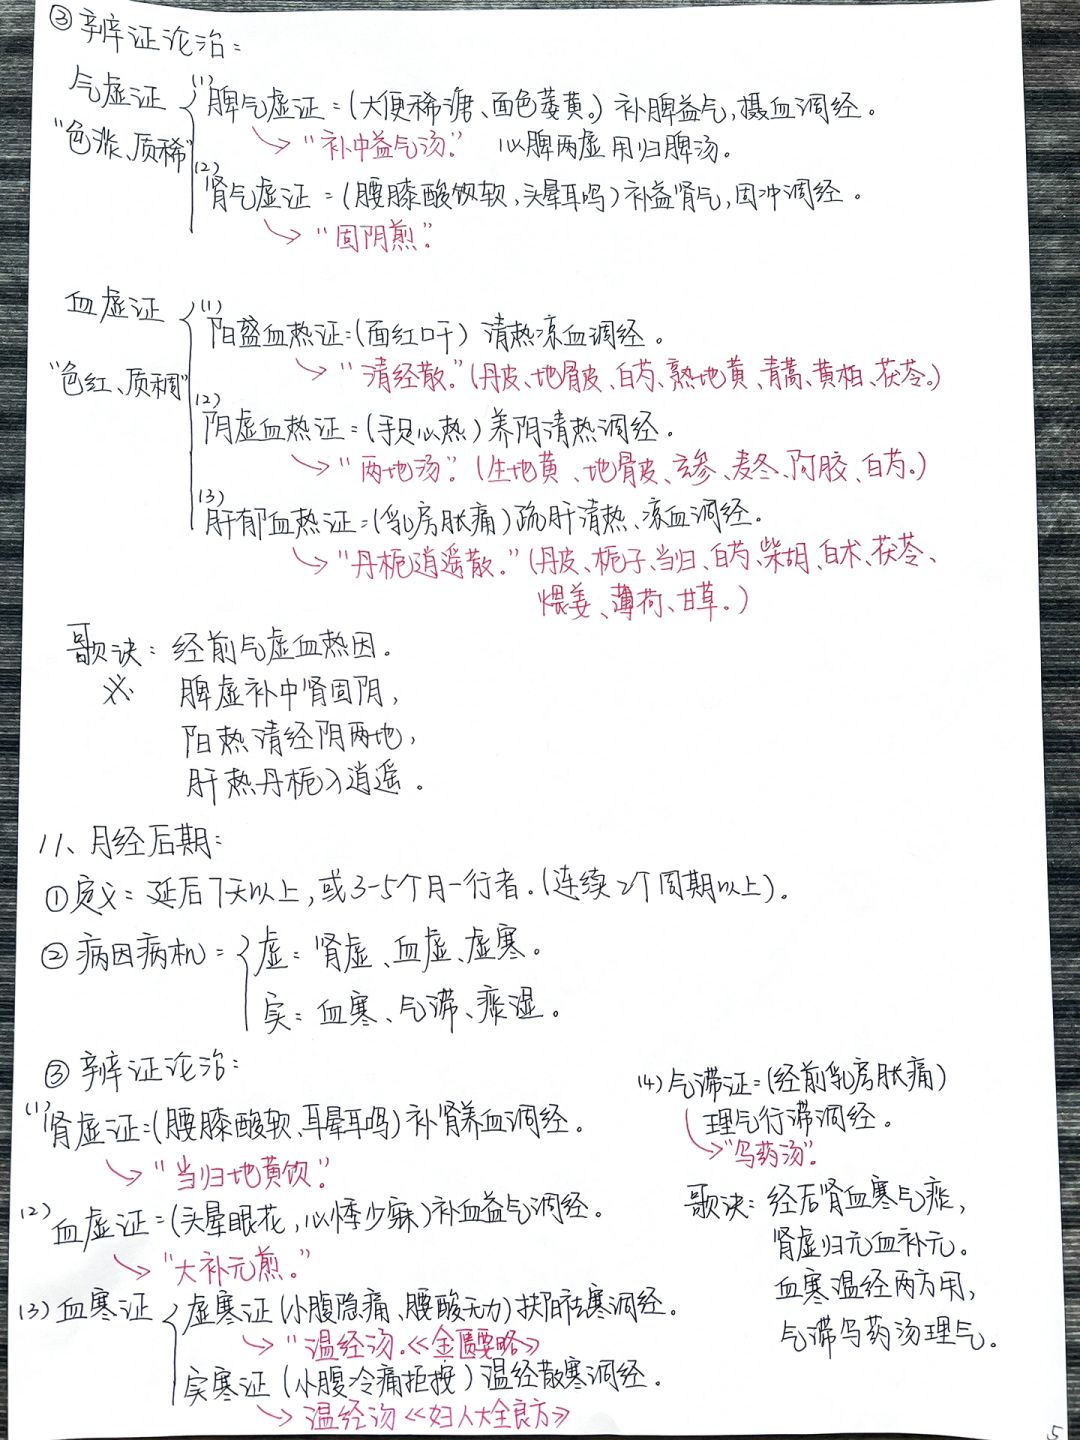 ③ 辨证论治:
气虚证
"色淡、质稀"
(1) 脾气虚证=(大便稀溏、面色萎黄。) 补脾益气,摄血调经。
→ "补中益气汤." 心脾两虚用归脾汤。
(2) 肾气虚证=(腰膝酸软,头晕耳鸣)补益肾气,固冲调经。
→ "固阴煎".
血虚证
"色红、质稠"
(1) 阳盛血热证=(面红口干) 清热凉血调经。
→ "清经散."(丹皮、地骨皮、白芍、熟地黄、青蒿、黄柏、茯苓。)
(2) 阴虚血热证=(手足心热)养阴清热调经。
→ "两地汤".(生地黄、地骨皮、玄参、麦冬、阿胶、白芍。)
(3) 肝郁血热证=(乳房胀痛)疏肝清热、凉血调经。
→ "丹栀逍遥散."(丹皮、栀子、当归、白芍、柴胡、白术、茯苓、
煨姜、薄荷、甘草。)
歌诀: 经前气虚血热因.
※ 脾虚补中肾固阴,
阳热清经阴两地,
肝热丹栀入逍遥。
11、月经后期:
①定义=延后7天以上,或3-5个月一行者.(连续2个周期以上).
② 病因病机=
虚=肾虚、血虚、虚寒。
实=血寒、气滞、痰湿。
③ 辨证论治:
(1) 肾虚证=(腰膝酸软、耳晕耳鸣)补肾养血调经。
→ "当归地黄饮."
(2) 血虚证=(头晕眼花,心悸少寐)补血益气调经。
→ "大补元煎."
(3) 血寒证
虚寒证(小腹隐痛、腰酸无力)扶阳祛寒调经。
→ "温经汤.《金匮要略》
实寒证(小腹冷痛拒按)温经散寒调经。
→ 温经汤《妇人大全良方》
(4) 气滞证=(经前乳房胀痛)
理气行滞调经。
→ "乌药汤".
歌诀: 经后肾血寒气痰,
肾虚归元血补元。
血寒温经两方用,
气滞乌药汤理气。
5